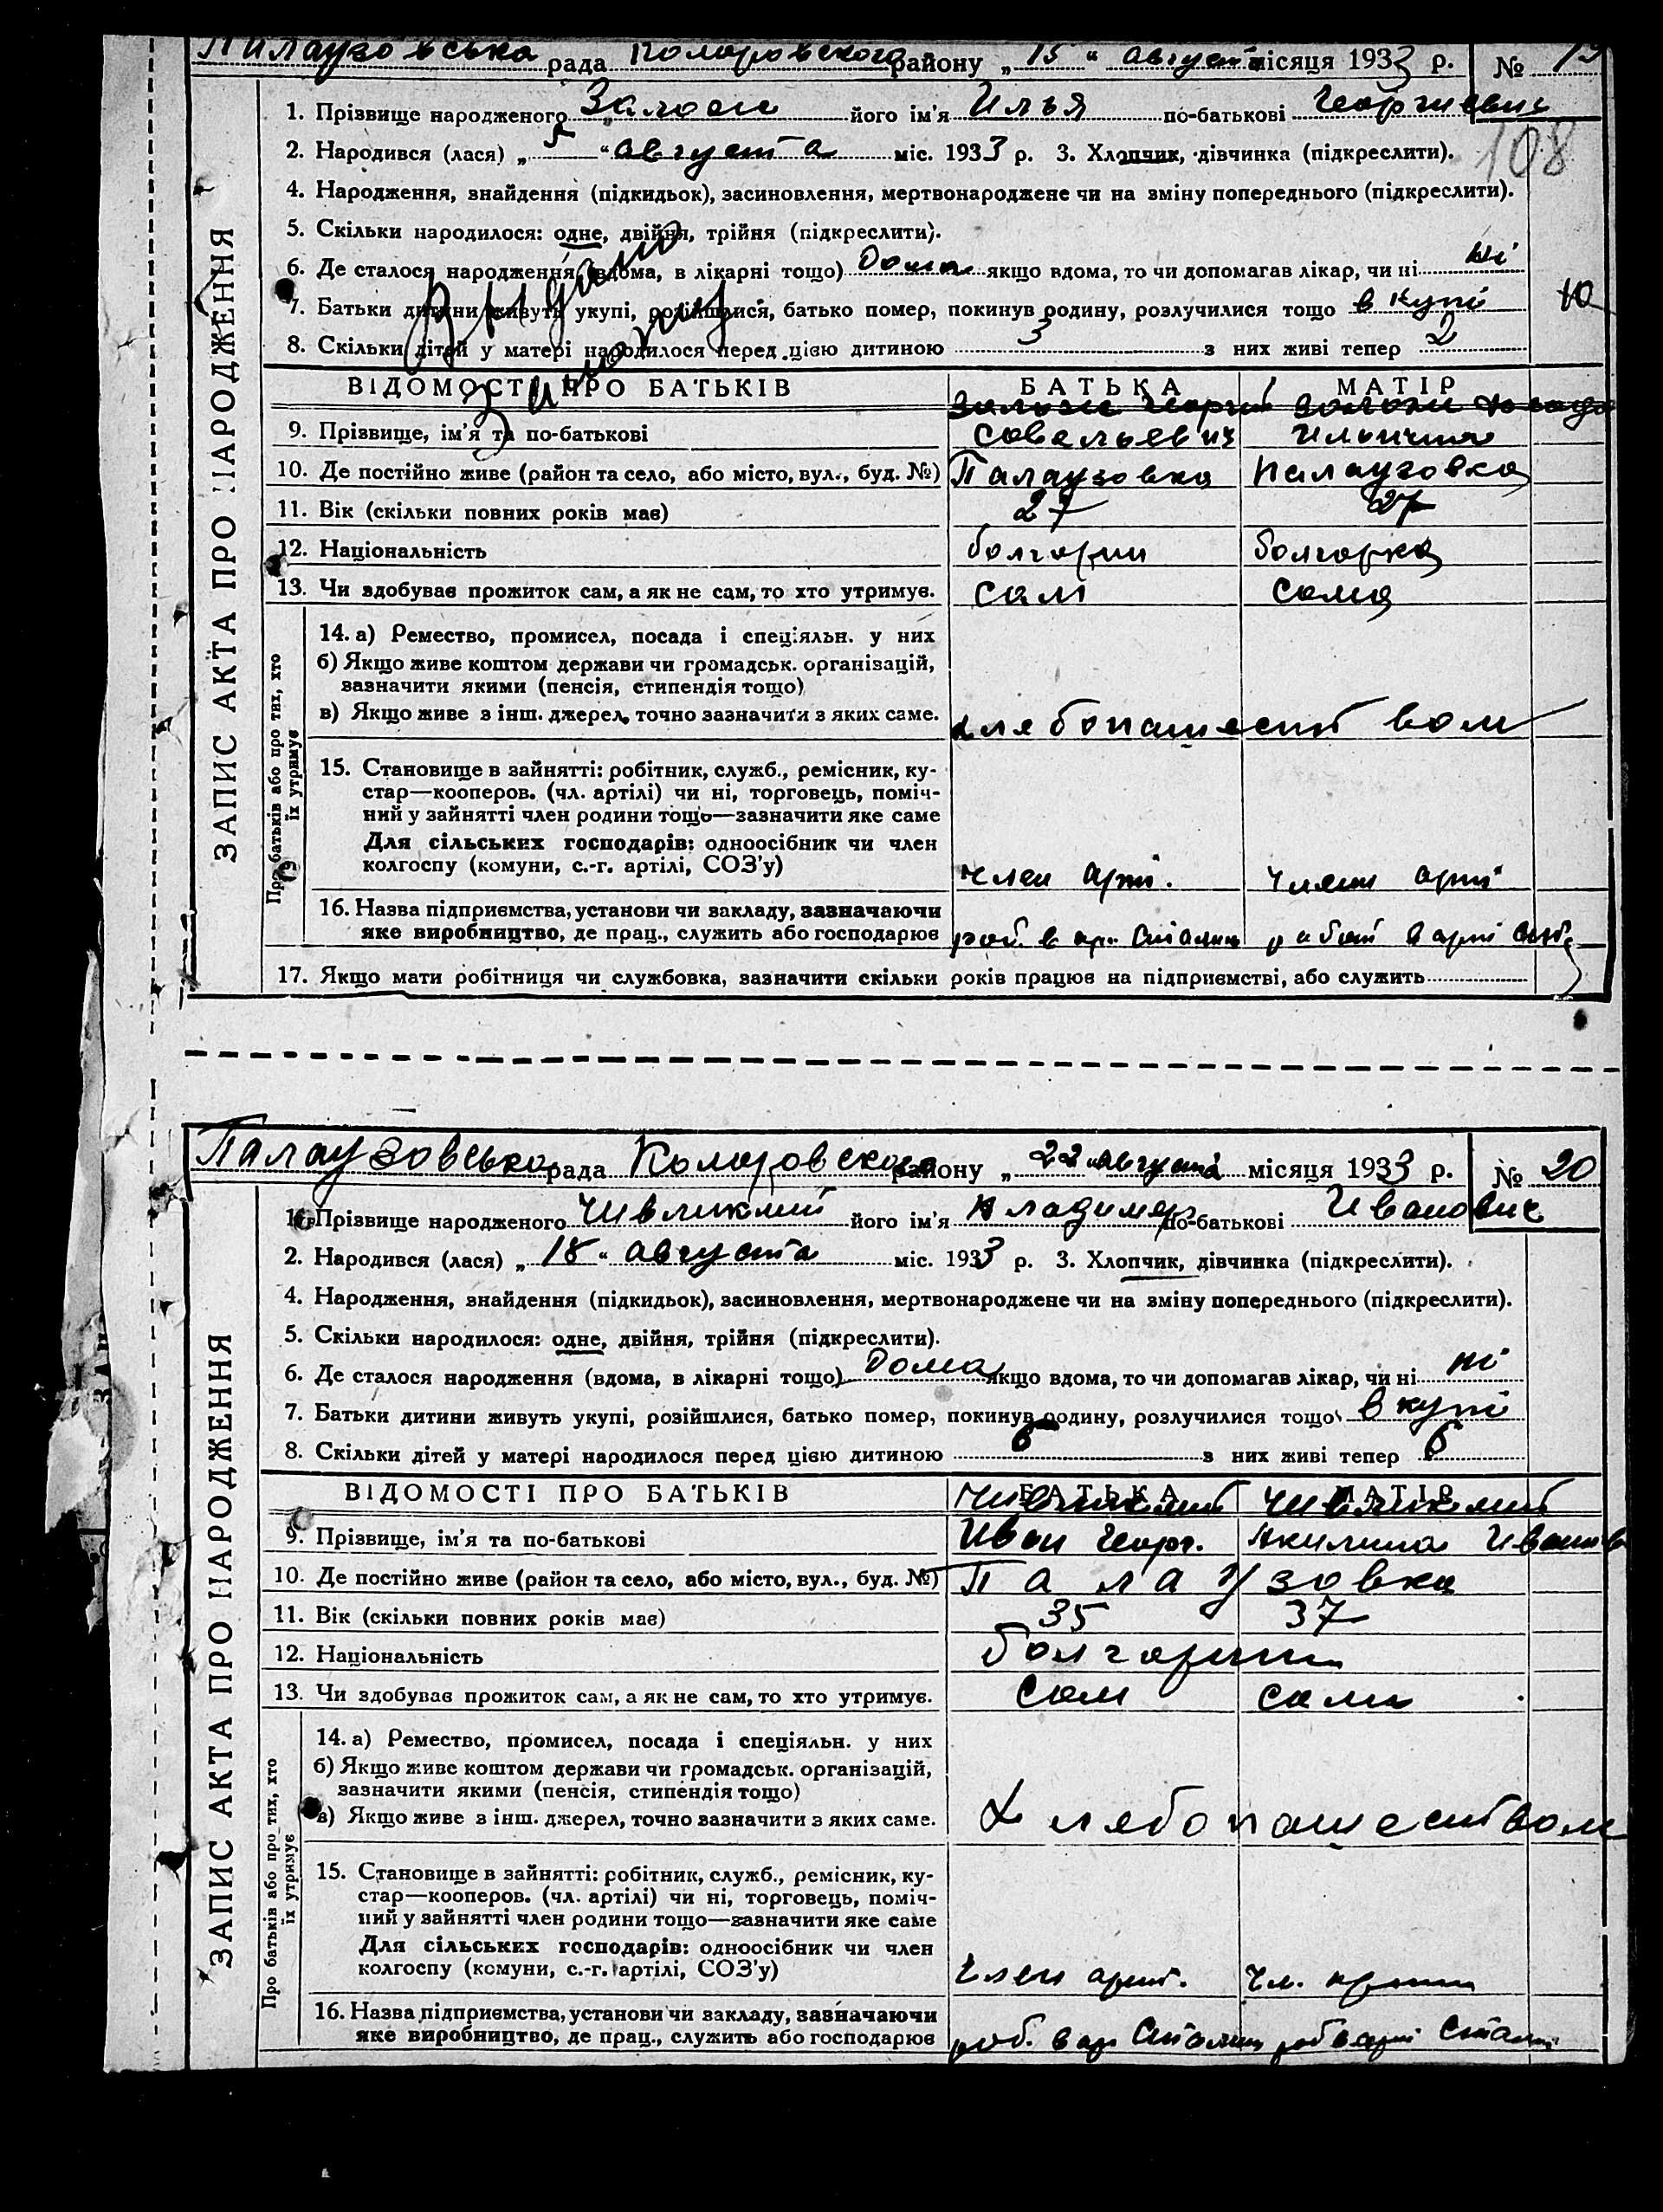 Палаузовська рада Коларовского району „ 15 “ август місяця 1933 р. № 19
1. Прізвище народженого його ім'я Илья по-батькові Георгиевич
108
2. Народився (лася) „ 5 “ августа міс. 1933 р. 3. Хлопчик, дівчинка (підкреслити).
4. Народження, знайдення (підкидьок), засиновлення, мертвонароджене чи на зміну попереднього (підкреслити).
5. Скільки народилося: одне, двійня, трійня (підкреслити).
6. Де сталося народження (вдома, в лікарні тощо) Дома якщо вдома, то чи допомагав лікар, чи ні ні
7. Батьки дитини живуть укупі, розійшлися, батько помер, покинув родину, розлучилися тощо в купі
8. Скільки дітей у матері народилося перед цією дитиною 3 з них живі тепер 2
ВІДОМОСТІ ПРО БАТЬКІВ БАТЬКА МАТІР
Георгий
9. Прізвище, ім'я та по-батькові Савельевич
10. Де постійно живе (район та село, або місто, вул., буд. №) Палаузовка Палаузовка
11. Вік (скільки повних років має) 27 27
12. Національність болгарин болгарка
13. Чи здобував прожиток сам, а як не сам, то хто утримує. сам сама
ЗАПИС АКТА ПРО НАРОДЖЕННЯ
Про батьків або про тих, хто
їх утримує
14. а) Ремество, промисел, посада і спеціяльн. у них
б) Якщо живе коштом держави чи громадськ. організацій,
зазначити якими (пенсія, стипендія тощо)
в) Якщо живе з інш. джерел, точно зазначити з яких саме. хлебопашеством
15. Становище в зайнятті: робітник, служб., ремісник, ку-
стар—кооперов. (чл. артілі) чи ні, торговець, поміч-
ний у зайнятті член родини тощо—зазначити яке саме
Для сільських господарів: одноосібник чи член
колгоспу (комуни, с.-г. артілі, СОЗ'у) член арт. член арт
16. Назва підприємства, установи чи закладу, зазначаючи
яке виробництво, де прац., служить або господарює раб. в ар. Сталин
17. Якщо мати робітниця чи службовка, зазначити скільки років працює на підприємстві, або служить
Палаузовсько рада Коларовского району „ 22 “ августа місяця 1933 р. № 20
1. Прізвище народженого Чивликлий його ім'я Владимир по-батькові Иванович
2. Народився (лася) „ 18 “ августа міс. 1933 р. 3. Хлопчик, дівчинка (підкреслити).
4. Народження, знайдення (підкидьок), засиновлення, мертвонароджене чи на зміну попереднього (підкреслити).
5. Скільки народилося: одне, двійня, трійня (підкреслити).
6. Де сталося народження (вдома, в лікарні тощо) Дома якщо вдома, то чи допомагав лікар, чи ні ні
7. Батьки дитини живуть укупі, розійшлися, батько помер, покинув родину, розлучилися тощо в купі
8. Скільки дітей у матері народилося перед цією дитиною 6 з них живі тепер 6
ВІДОМОСТІ ПРО БАТЬКІВ БАТЬКА МАТІР
Чивликлий Чивликлий
9. Прізвище, ім'я та по-батькові Иван Георг. Акилина Иванов
10. Де постійно живе (район та село, або місто, вул., буд. №) Палаузовка
11. Вік (скільки повних років має) 35 37
12. Національність болгарин
13. Чи здобував прожиток сам, а як не сам, то хто утримує. сам сама
ЗАПИС АКТА ПРО НАРОДЖЕННЯ
Про батьків або про тих, хто
їх утримує
14. а) Ремество, промисел, посада і спеціяльн. у них
б) Якщо живе коштом держави чи громадськ. організацій,
зазначити якими (пенсія, стипендія тощо)
в) Якщо живе з інш. джерел, точно зазначити з яких саме. Хлебопашеством
15. Становище в зайнятті: робітник, служб., ремісник, ку-
стар—кооперов. (чл. артілі) чи ні, торговець, поміч-
ний у зайнятті член родини тощо—зазначити яке саме
Для сільських господарів: одноосібник чи член
колгоспу (комуни, с.-г. артілі, СОЗ'у) член арт. Чл.
16. Назва підприємства, установи чи закладу, зазначаючи
яке виробництво, де прац., служить або господарює раб. в ар Сталин